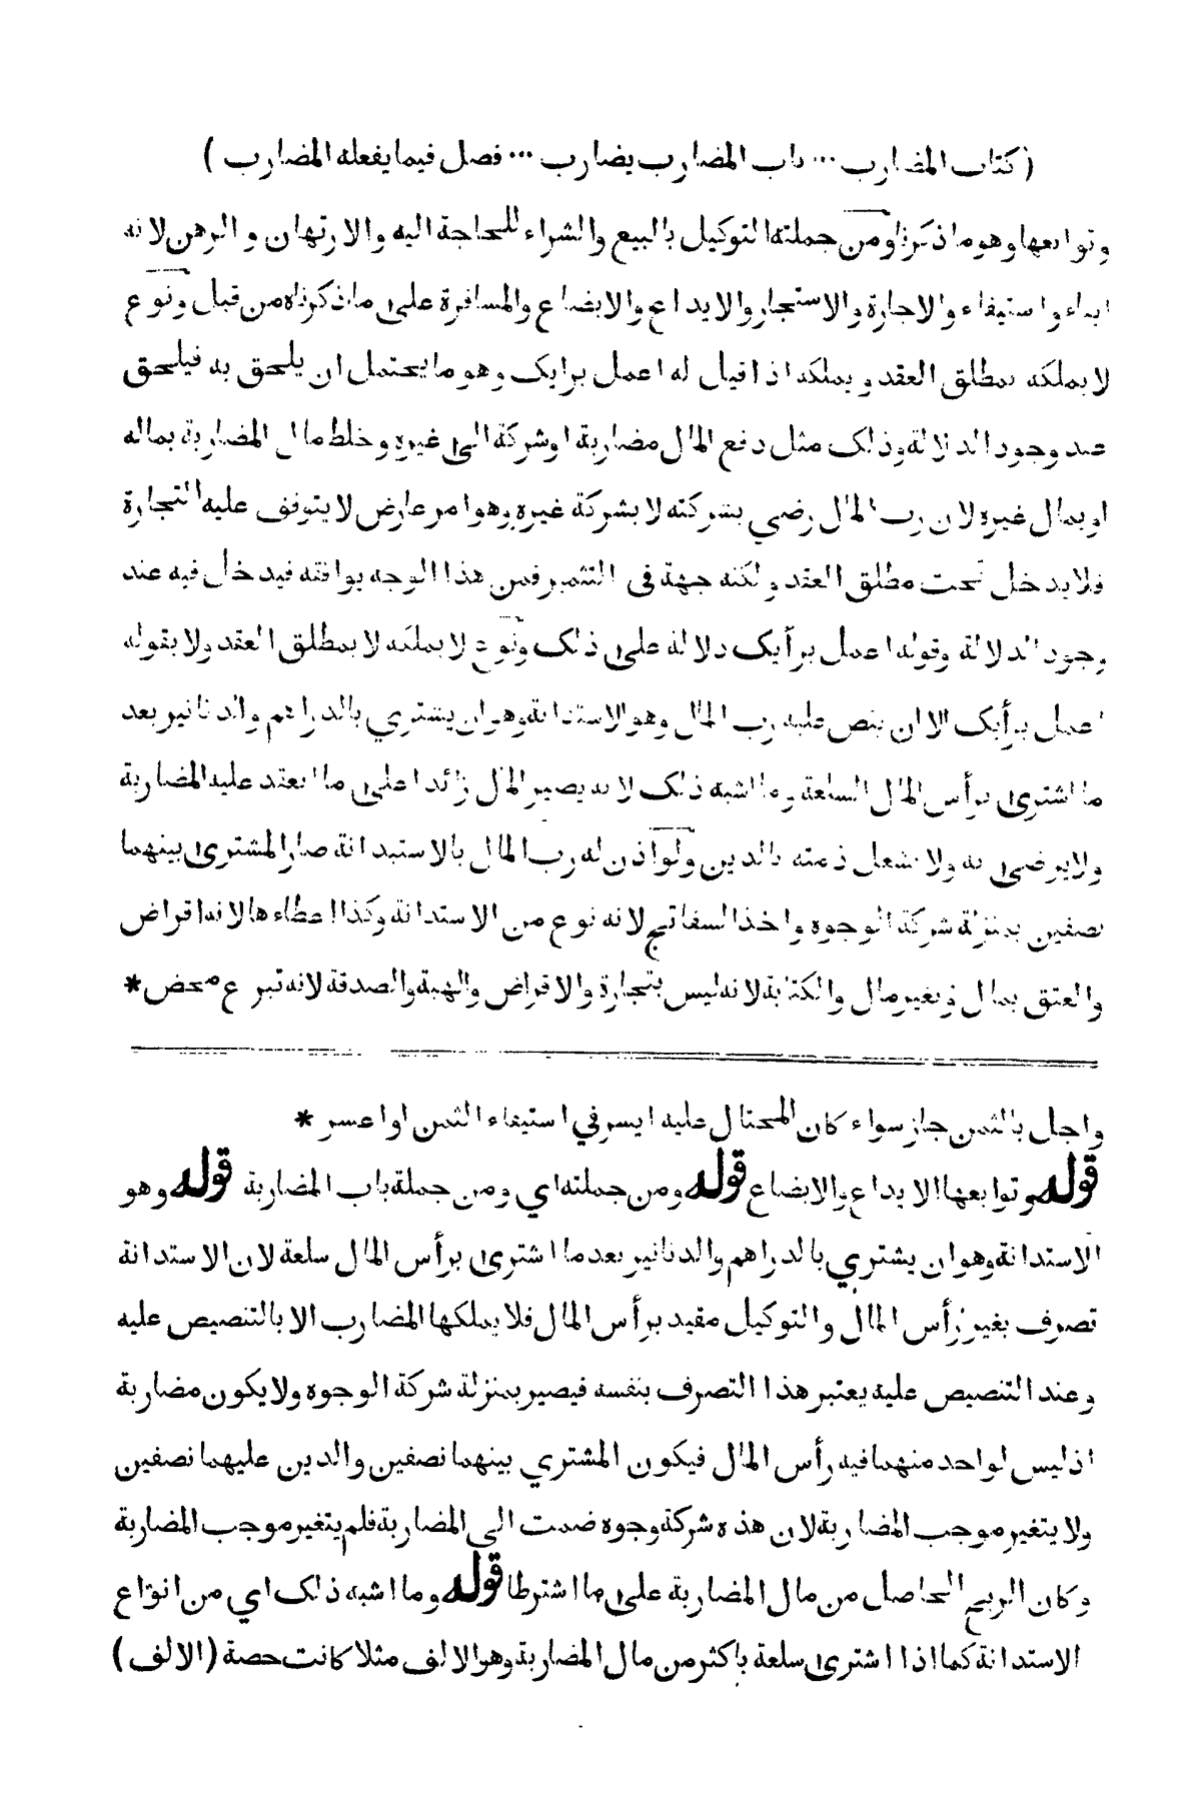 ( كتاب المضارب ... باب المضارب يضارب ... فصل فيما يفعله المضارب )
وتوابعها وهو ما ذكرنا ومن جملته التوكيل بالبيع والشراء للحاجة اليه والارتهان و الرهن لانه
ايفاء واستيفاء والاجارة والاستيجار والايداع والابضاع والمسافرة على ما ذكرناه من قبل ونوع
لا يملكه بمطلق العقد و يملكه اذا قيل له اعمل برايك وهو ما يحتمل ان يلحق به فيلحق
عند وجود الدلالة وذلك مثل دفع المال مضاربة او شركة الى غيره و خلط مال المضاربة بماله
او بمال غيره لان رب المال رضي بشركته لا بشركة غيره وهو امر عارض لا يتوقف عليه التجارة
فلا يدخل تحت مطلق العقد ولكنه جهة فى التثمير فمن هذا الوجه يوافقه فيدخل فيه عند
وجود الدلالة وقوله اعمل برأيك دلالة على ذلك ونوع لا يملكه لا بمطلق العقد ولا بقوله
اعمل برأيك الا ان ينص عليه رب المال وهو الاستدانة وهو ان يشتري بالدراهم والدنانير بعد
ما اشترى برأس المال السلعة وما اشبه ذلك لانه يصير المال زائدا على ما انعقد عليه المضاربة
ولا يرضى به ولا يشغل ذمته بالدين ولو اذن له رب المال بالاستدانة صار المشترى بينهما
نصفين بمنزلة شركة الوجوه واخذ السفاتج لانه نوع من الاستدانة وكذا اعطاءها لانه اقراض
والعتق بمال وبغير مال والكتابة لانه ليس بتجارة والاقراض والهبة والصدقة لانه تبرع محض *
واجل بالثمن جاز سواء كان المحتال عليه ايسر في استيفاء الثمن او اعسر *
قوله وتوابعها الايداع والابضاع قوله ومن جملته اي ومن جملة باب المضاربة قوله وهو
الاستدانة وهو ان يشتري بالدراهم والدنانير بعد ما اشترى برأس المال سلعة لان الاستدانة
تصرف بغير رأس المال والتوكيل مقيد برأس المال فلا يملكها المضارب الا بالتنصيص عليه
وعند التنصيص عليه يعتبر هذا التصرف بنفسه فيصير بمنزلة شركة الوجوه ولا يكون مضاربة
اذ ليس لواحد منهما فيه رأس المال فيكون المشتري بينهما نصفين والدين عليهما نصفين
ولا يتغير موجب المضاربة لان هذه شركة وجوه ضمت الى المضاربة فلم يتغير موجب المضاربة
وكان الربح الحاصل من مال المضاربة على ما اشترطا قوله وما اشبه ذلك اي من انواع
الاستدانة كما اذا اشترى سلعة باكثر من مال المضاربة وهو الالف مثلا كانت حصة ( الالف )